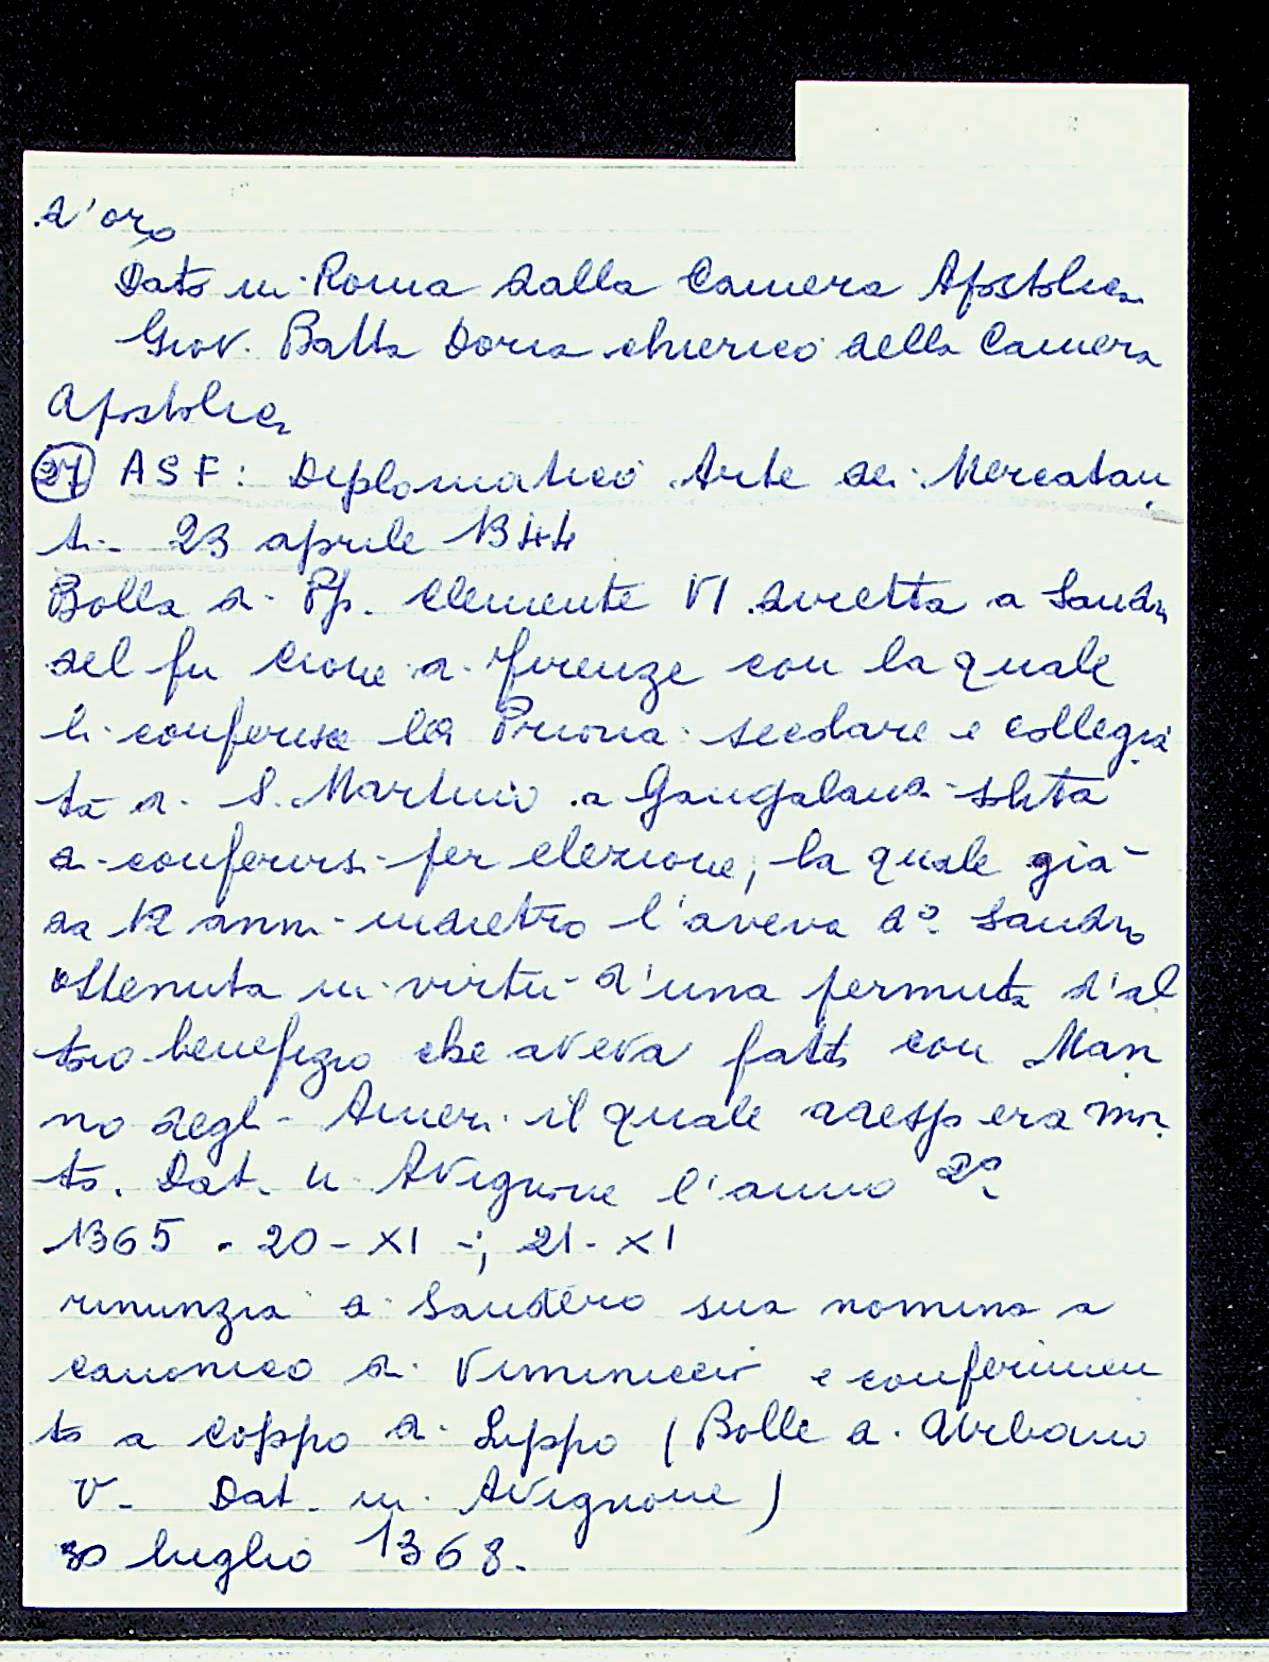 d'oro
Dato in Roma dalla Camera Apostolica
Giov. Batta Doria chierico della Camera
Apostolica
27 ASF: Diplomatico Arte dei Mercatan
ti - 23 aprile 1344
Bolla di Pp. Clemente VI diretta a Sandro
del fu Cione di Firenze con la quale
li conferisce la Prioria secolare e collegia
ta di S. Martino a Gangalandi solita
a conferirsi per elezione, la quale già
da 12 anni indietro l'aveva do Sandro
ottenuta in virtù d'una permuta d'al
tro benefizio che aveva fatto con Man
no degli Ameri il quale era mor
to. Dat. in Avignone l'anno 2o
1365 - 20 - XI -; 21 - XI
rinunzia di Sandero sua nomina a
canonico di e conferimen
to a Coppo di Lippo (Bolle di Urbano
V - Dat. in Avignone)
30 luglio 1368.